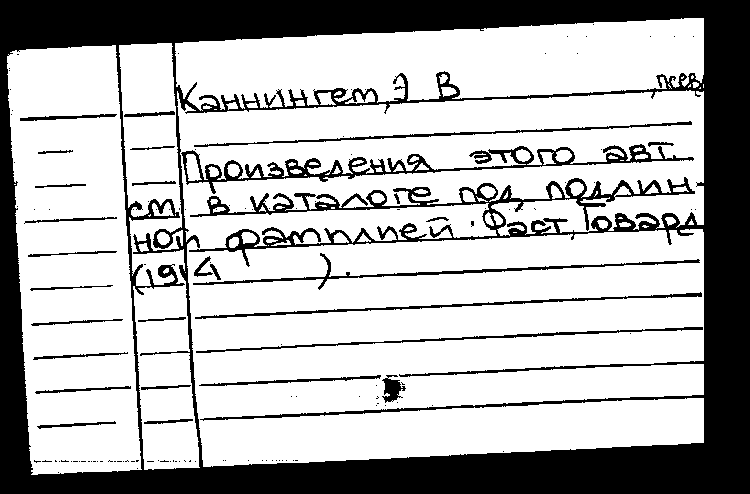 Каннингем, Э В , псев
Произведения этого авт.
см. в каталоге под подлин-
ной фамилией: Фаст, Говард
(1914 ).